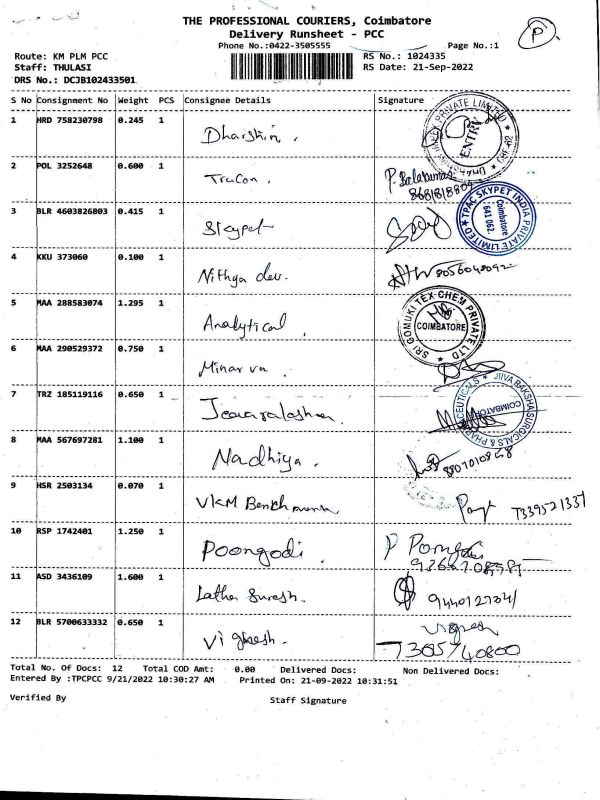 THE PROFESSIONAL COURIERS, Coimbatore
P
Delivery Runsheet - PCC
Phone No.:0422-3505555 Page No.:1
Route: KM PLM PCC RS No.: 1024335
Staff: THULASI RS Date: 21-Sep-2022
DRS No.: DCJB102433501
S No Consignment No Weight PCS Consignee Details Signature
1 HRD 758230798 0.245 1 Dharshin. PRIVATE LIMITED ENTRY
2 POL 3252648 0.600 1 TruCon. P. Balakumar
3 BLR 4603826803 0.415 1 Skypet TRAC SKYPET INDIA PRIVATE LIMITED Coimbatore 641 062
4 KKU 373060 0.100 1 Nithya dev.
5 MAA 288583074 1.295 1 Analytical. SRI GOMUKI TEX CHEM PRIVATE LTD COIMBATORE
6 MAA 290529372 0.750 1
7 TRZ 185119116 0.650 1 JIIVA RAKSHA SURGICALS & PHARMACEUTICALS COIMBATORE
8 MAA 567697281 1.100 1 Nadhiya.
9 HSR 2503134 0.070 1 VKM 7339521337
10 RSP 1742401 1.250 1 Poongodi. P
11 ASD 3436109 1.600 1 Latha Suresh.
12 BLR 5700633332 0.650 1 Vignesh. Vignesh
Total No. Of Docs: 12 Total COD Amt: 0.00 Delivered Docs: Non Delivered Docs:
Entered By :TPCPCC 9/21/2022 10:30:27 AM Printed On: 21-09-2022 10:31:51
Verified By Staff Signature